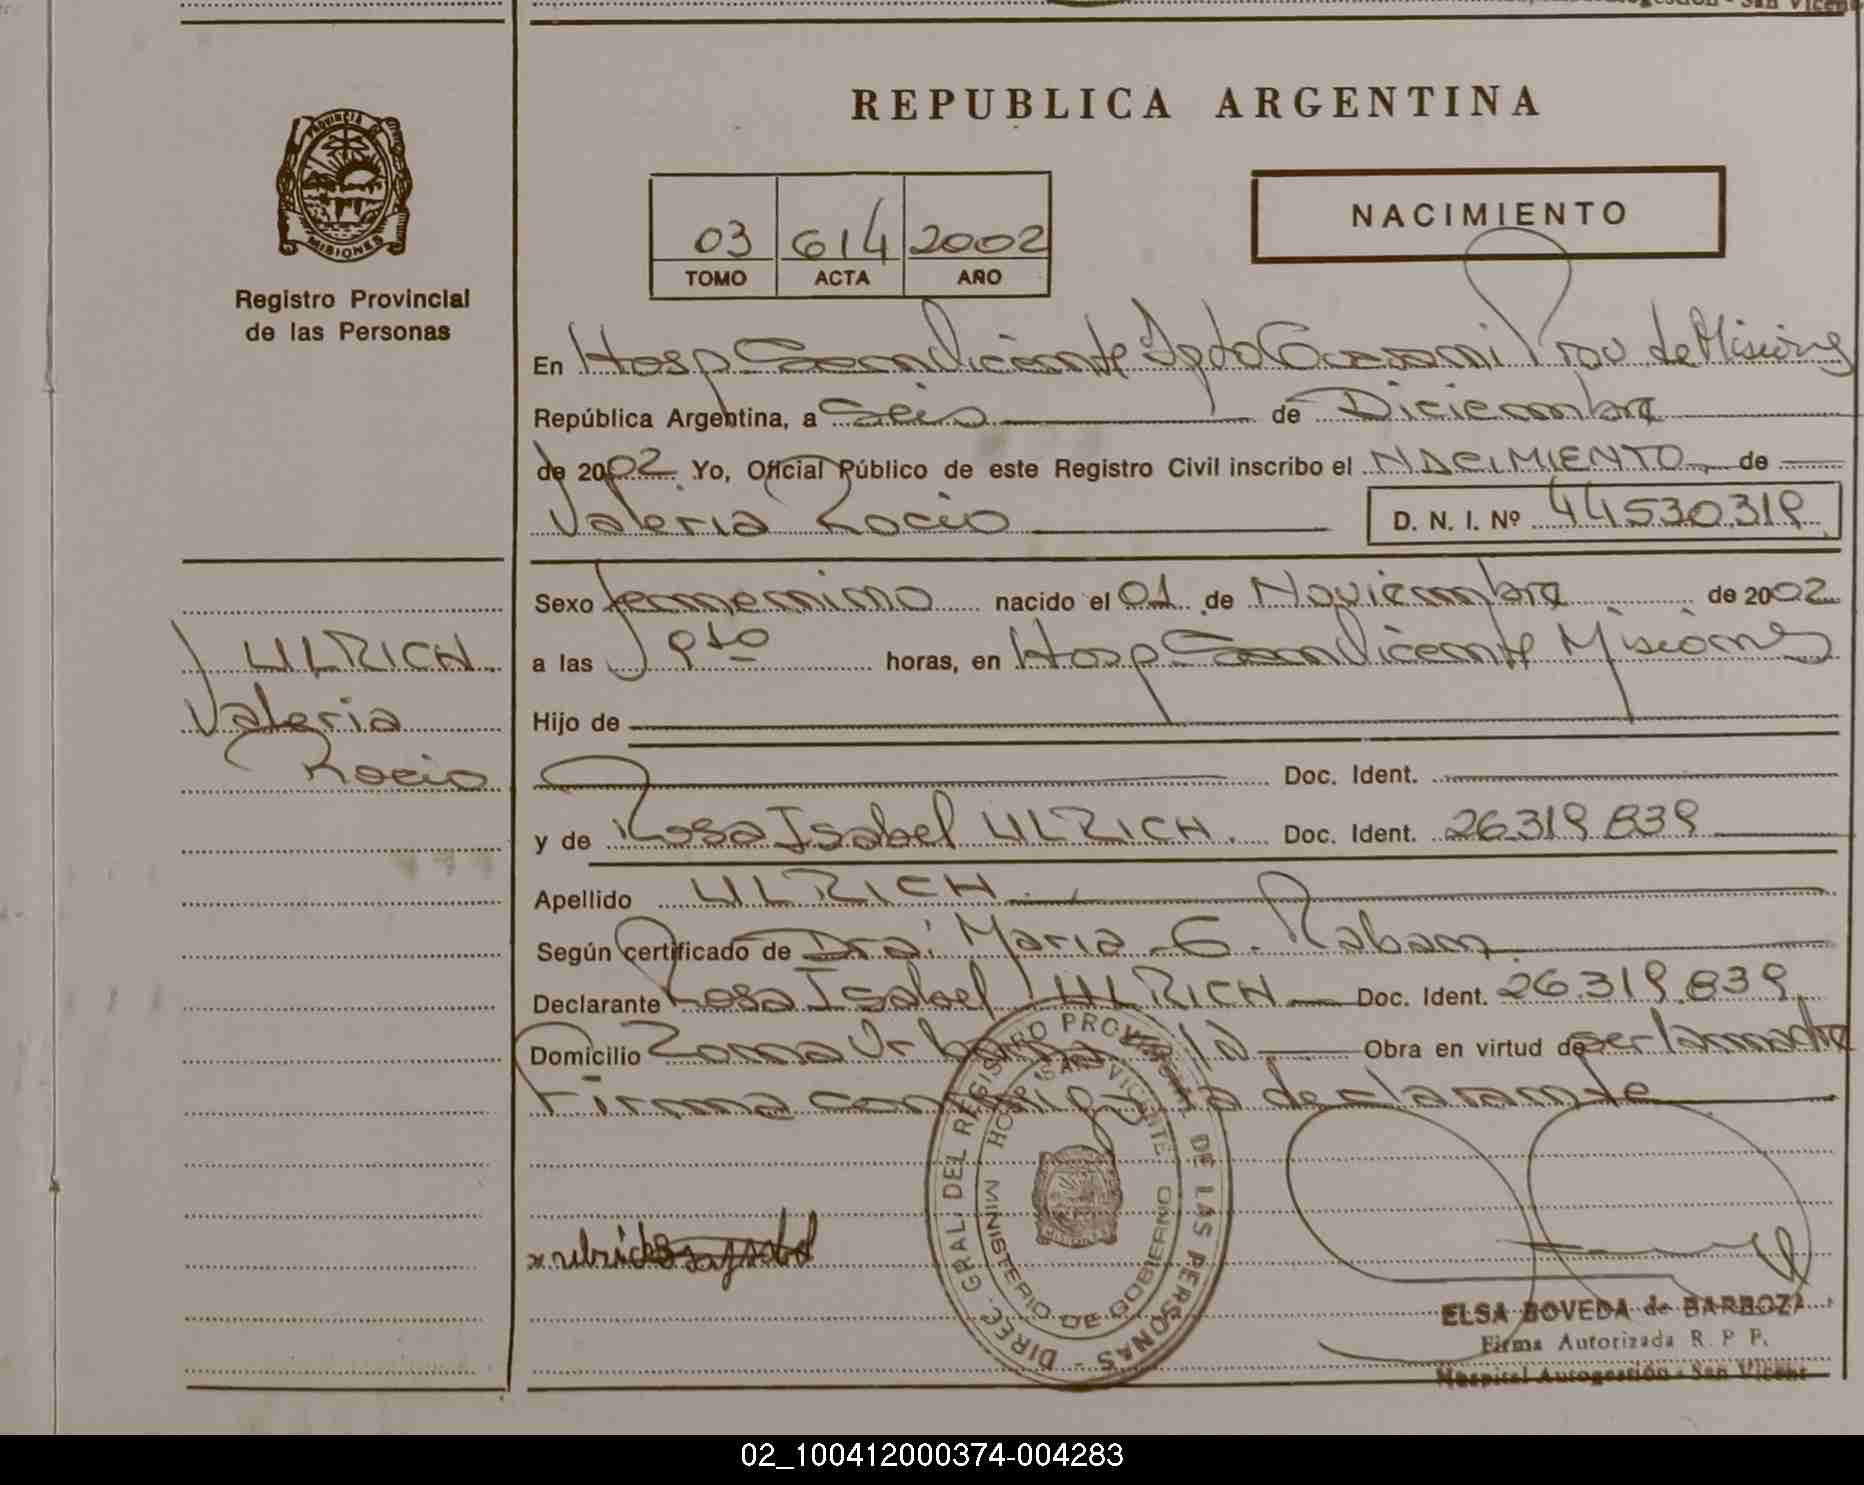 REPUBLICA ARGENTINA
PROVINCIA DE MISIONES
Registro Provincial
de las Personas
03 614 2002
TOMO ACTA AÑO
NACIMIENTO
En Hosp San Vicente Dpto Guarani Prov de Misiones
República Argentina, a Seis de Diciembre
de 2002 Yo, Oficial Público de este Registro Civil inscribo el NACIMIENTO de
Valeria Rocio D. N. I. Nº 44530319
Sexo femenino nacido el 01 de Noviembre de 2002
a las 9 10 horas, en Hosp San Vicente Misiones
Hijo de
Doc. Ident.
y de Rosa Isabel ULRICH. Doc. Ident. 26.319.839
Apellido ULRICH
Según certificado de Dra. Maria G. Raban
Declarante Rosa Isabel ULRICH Doc. Ident. 26.319.839
Domicilio Zona Urbana Obra en virtud de ser la madre
Firma declarante
ULRICH
Valeria
Rocio
DIREC. GRAL. DEL REGISTRO PROVINCIAL DE LAS PERSONAS
HOSP. SAN VICENTE
MINISTERIO DE GOBIERNO
ELSA BOVEDA de BARBOZA
Firma Autorizada R. P. P.
Hospital Autogestión - San Vicente
02_100412000374-004283